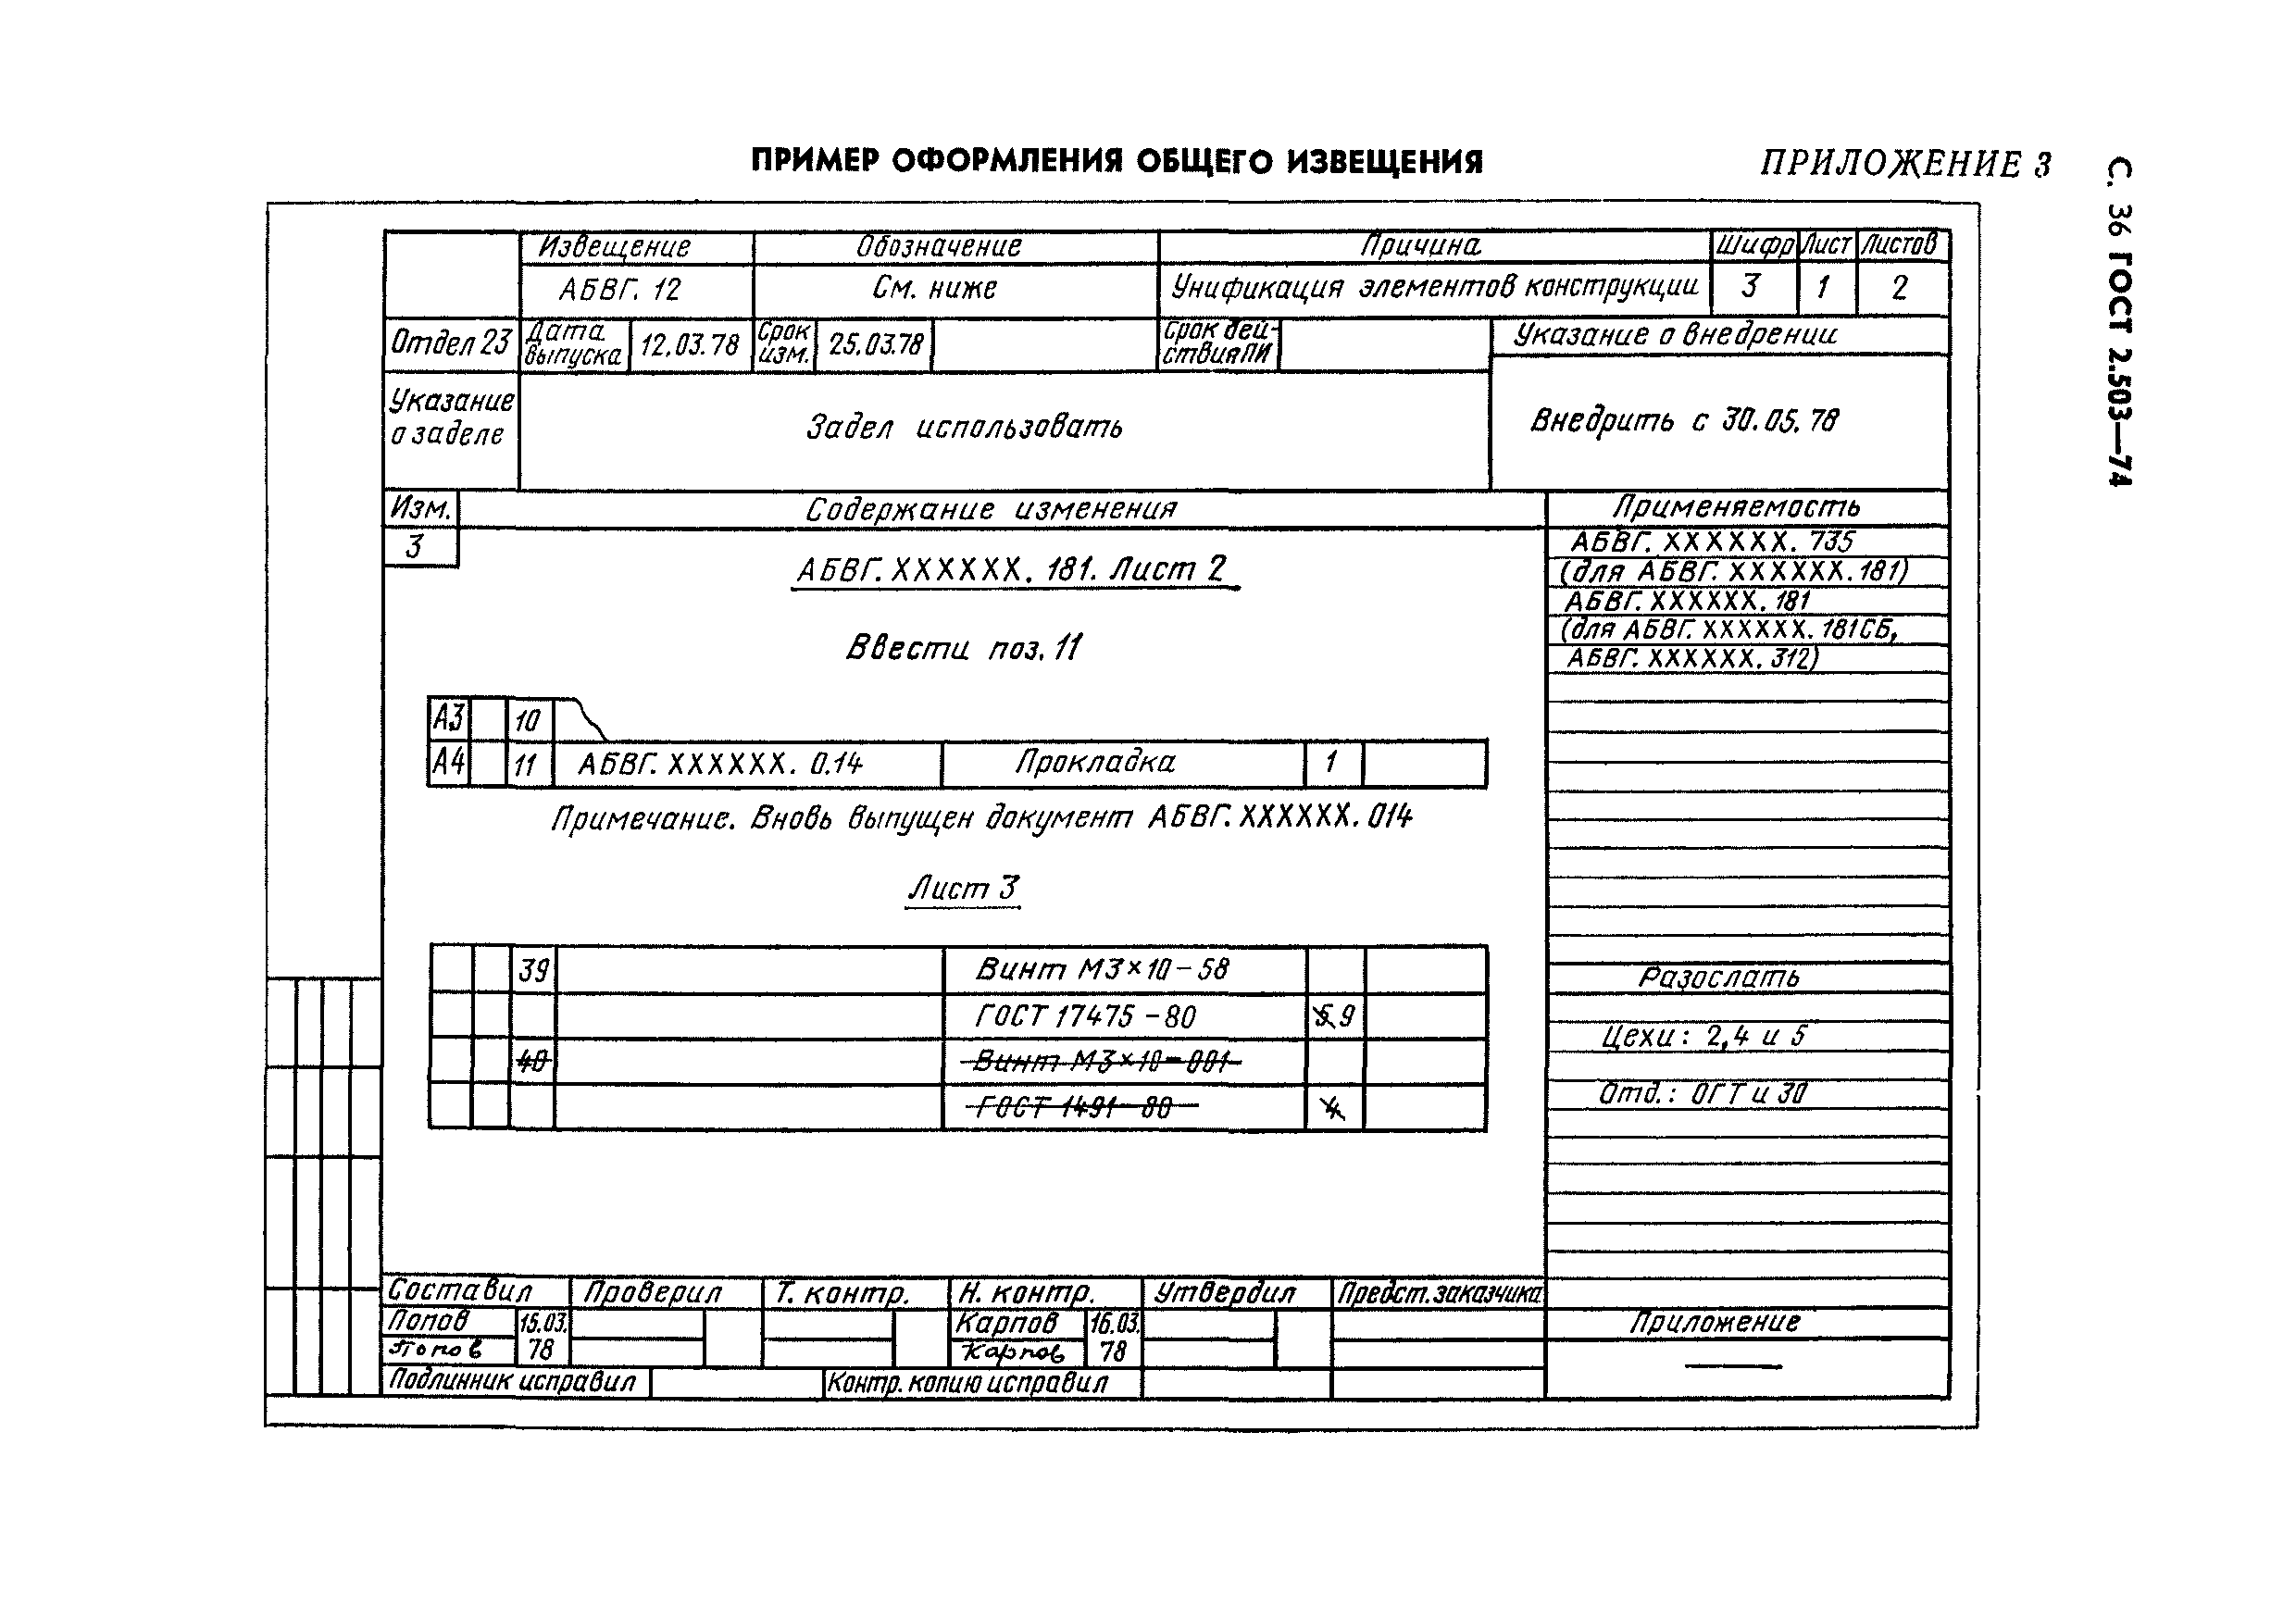 ПРИМЕР ОФОРМЛЕНИЯ ОБЩЕГО ИЗВЕЩЕНИЯ
ПРИЛОЖЕНИЕ 3
С. 36 ГОСТ 2.503—74
Извещение Обозначение Причина Шифр Лист Листов
АБВГ. 12 См. ниже Унификация элементов конструкции 3 1 2
Отдел 23 Дата выпуска 12.03.78 Срок изм. 25.03.78 Срок дей-
ствия ПИ Указание о внедрении
Указание
о заделе
Задел использовать
Внедрить с 30.05.78
Изм. Содержание изменения Применяемость
3
АБВГ. ХХХХХХ. 181. Лист 2
Ввести поз. 11
А3 10
А4 11 АБВГ. ХХХХХХ. 0.14 Прокладка 1
Примечание. Вновь выпущен документ АБВГ. ХХХХХХ. 014
Лист 3
39 Винт М3×10–58
ГОСТ 17475–80 5 9
40 Винт М3×10–001
ГОСТ 1491–80 4
АБВГ. ХХХХХХ. 735
(для АБВГ. ХХХХХХ. 181)
АБВГ. ХХХХХХ. 181
(для АБВГ. ХХХХХХ. 181СБ,
АБВГ. ХХХХХХ. 312)
Разослать
Цехи: 2,4 и 5
Отд.: ОГТ и 30
Составил Проверил Т. контр. Н. контр. Утвердил Предст. заказчика
Попов 15.03. Карпов 16.03.
Попов 78 Карпов 78
Подлинник исправил Контр. копию исправил
Приложение